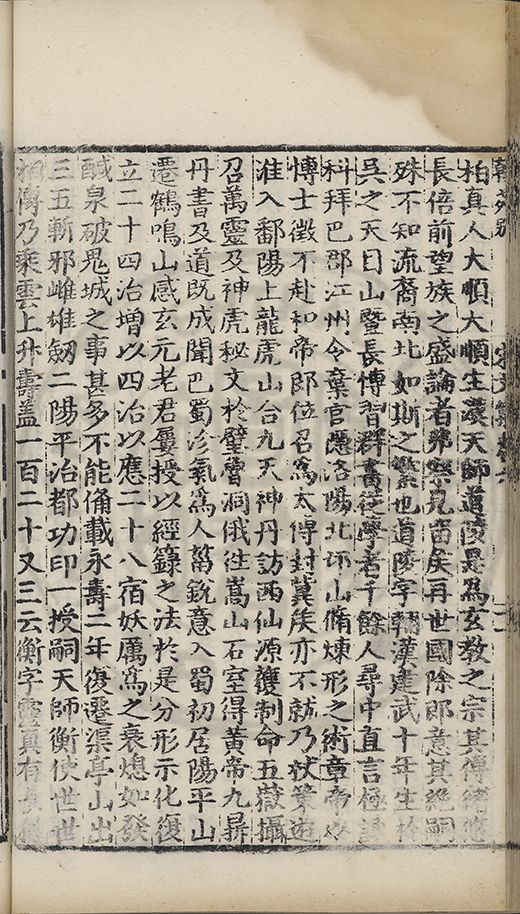 柏真人大順大順生漢天師道陵是爲玄教之宗其傳緒悠
長倍前望族之盛論者弟察見留矦再世國除即意其絶嗣
殊不知流裔南北如斯之繁也道陵字輔漢建武十年生於
吳之天目山暨長博習群書從學者千餘人尋中直言極諫
科拜巴郡江州令棄官隱洛陽北邙山脩煉形之術章帝以
博士徵不赴和帝即位召爲太傅封冀矦亦不就乃杖策遊
淮入鄱陽上龍虎山合九天神丹訪西仙源獲制命五嶽攝
召萬靈及神虎秘文於壁魯洞俄徃嵩山石室得黃帝九鼎
丹書及道既成聞巴蜀沴氣爲人菑銳意入蜀初居陽平山
遷鶴鳴山感玄元老君屢授以經籙之法於是分形示化復
立二十四治增以四治以應二十八宿妖厲爲之衰熄如發
醎泉破鬼城之事甚多不能俻載永壽二年復遷渠亭山出
三五斬邪雌雄劒二陽平治都功印一授嗣天師衡使世世
相傳乃乘雲上升壽盖一百二十又三云衡字靈真有